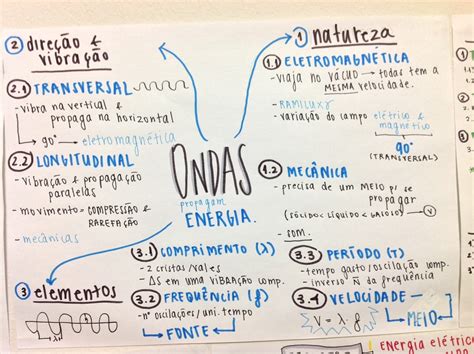 ONDAS
propagam
ENERGIA.
1 natureza
1.1 ELETROMAGNÉTICA
- viaja no VÁCUO → todas tem a
MESMA velocidade.
- variação do campo elétrico &
magnético
90°
(TRANSVERSAL)
1.2 MECÂNICA
- precisa de um MEIO p/ se
propagar
(SÓLIDO < LÍQUIDO < GASOSO) → V
- som.
2 direção &
vibração
2.1 TRANSVERSAL
- vibra na vertical &
propaga na horizontal
90° → eletromagnética
2.2 LONGITUDINAL
- vibração & propagação
paralelas
- movimento = COMPRESSÃO &
RAREFAÇÃO
- mecânicas
3 elementos
3.1 COMPRIMENTO (λ)
- 2 cristas/vales
- ΔS em uma vibração comp.
3.2 FREQUÊNCIA (f)
- nº oscilações/uni. tempo
FONTE
3.3 PERÍODO (T)
- tempo gasto/oscilação comp.
- inverso da frequência
3.4 VELOCIDADE
V = λ.f
MEIO
! energia elétric